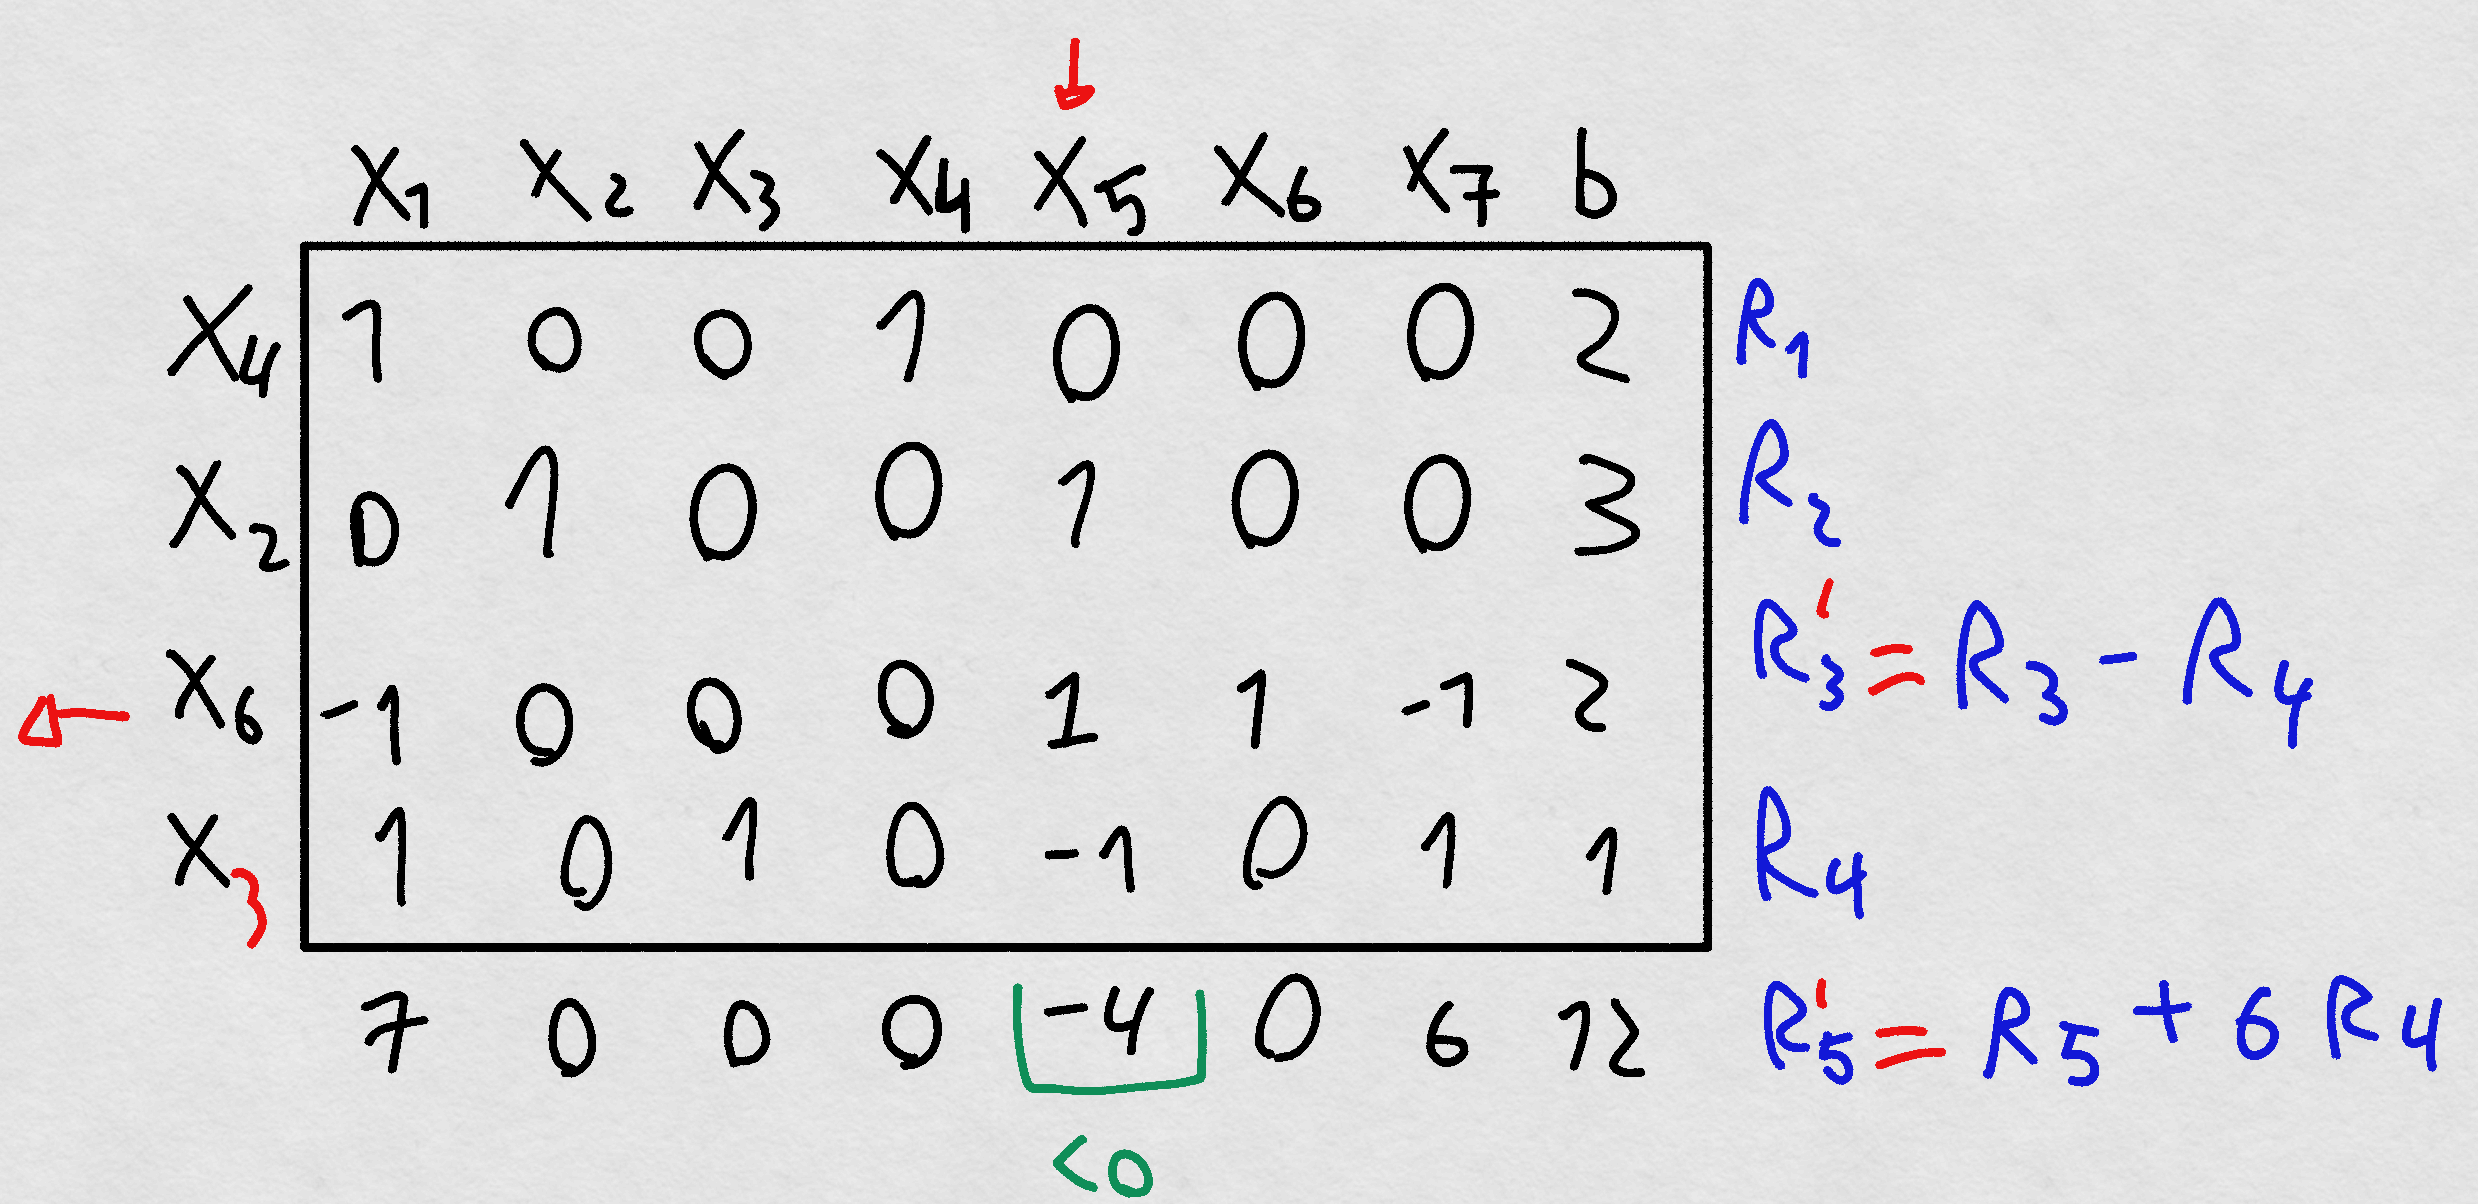 X1 X2 X3 X4 X5 X6 X7 b
X4 1 0 0 1 0 0 0 2 R1
X2 0 1 0 0 1 0 0 3 R2
X6 -1 0 0 0 1 1 -1 2 R3' = R3 - R4
X3 1 0 1 0 -1 0 1 1 R4
7 0 0 0 -4 0 6 12 R5' = R5 + 6 R4
<0